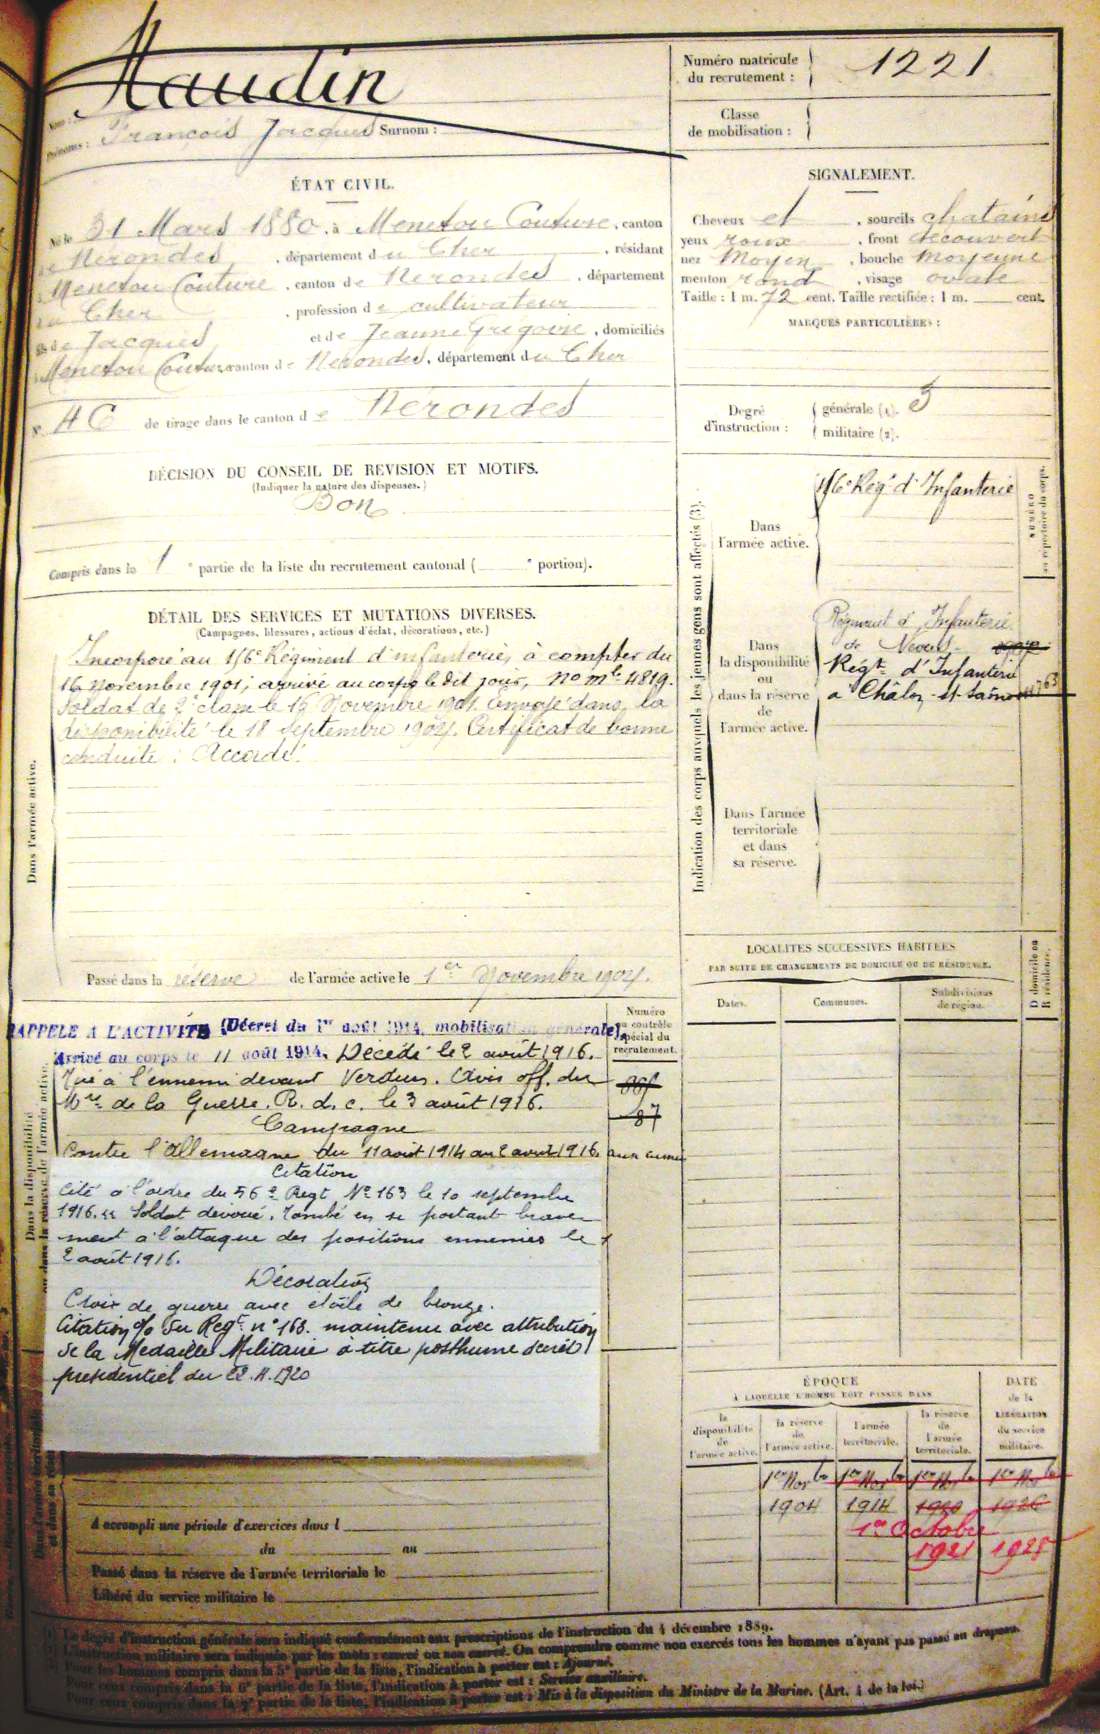 Haudin
Numéro matricule du recrutement : 1221
Nom :
Prénoms : François Jacques Surnom :
Classe de mobilisation :
ÉTAT CIVIL.
Né le 31 Mars 1880, à Menetou Couture, canton
de Nérondes, département du Cher, résidant
à Menetou Couture, canton de Nérondes, département
du Cher, profession de cultivateur
fils de Jacques et de Jeanne Grégoire, domiciliés
à Menetou Couture, canton de Nérondes, département du Cher
N° de tirage dans le canton de Nérondes
SIGNALEMENT.
Cheveux et, sourcils chatains
yeux roux, front découvert
nez moyen, bouche moyenne
menton rond, visage ovale
Taille : 1 m. 72 cent. Taille rectifiée : 1 m. cent.
MARQUES PARTICULIÈRES :
Degré d'instruction : générale (1). 3
militaire (2).
DÉCISION DU CONSEIL DE REVISION ET MOTIFS.
(Indiquer la nature des dispenses.)
Bon
Compris dans la 1 e partie de la liste du recrutement cantonal ( e portion).
DÉTAIL DES SERVICES ET MUTATIONS DIVERSES.
(Campagnes, blessures, actions d'éclat, décorations, etc.)
Dans l'armée active.
Incorporé au 56e Régiment d'infanterie, à compter du
16 novembre 1901, arrivé au corps le dit jour, no mle 4819.
Soldat de 2e classe le 16 Novembre 1901. Envoyé dans la
disponibilité le 18 septembre 1904. Certificat de bonne
conduite : Accordé.
Passé dans la réserve de l'armée active le 1er Novembre 1904.
Indication des corps auxquels les jeunes gens sont affectés (3).
NUMÉRO au répertoire du corps.
Dans l'armée active.
56e Régt d'Infanterie
Dans la disponibilité ou dans la réserve de l'armée active.
Régiment d'Infanterie
de Nevers
Régt d'Infanterie
a Châlon-s-Saône
Dans l'armée territoriale et dans sa réserve.
LOCALITÉS SUCCESSIVES HABITÉES
PAR SUITE DE CHANGEMENTS DE DOMICILE OU DE RÉSIDENCE.
D domicile ou R résidence.
Dates.
Communes.
Subdivisions de région.
Dans la disponibilité ou dans la réserve de l'armée active.
Numéro au contrôle spécial du recrutement.
RAPPELÉ A L'ACTIVITÉ (Décret du 1er août 1914, mobilisation générale),
Arrivé au corps le 11 août 1914. Décédé le 2 août 1916.
Tué à l'ennemi devant Verdun. Avis off. du
Mre de la Guerre. R. d. c. le 3 août 1916.
Campagne
Contre l'Allemagne du 11 août 1914 au 2 août 1916. aux armées
Citation
Cité à l'ordre du 56e Régt No 163 le 10 septembre
1916. « Soldat dévoué. Tombé en se portant brave
ment à l'attaque des positions ennemies le
2 août 1916.
Décoration
Croix de guerre avec étoile de bronze.
Citation o/o du Regt n° 163. maintenue avec attribution
de la Médaille Militaire à titre posthume décret
présidentiel du
ÉPOQUE
A LAQUELLE L'HOMME DOIT PASSER DANS
la disponibilité de l'armée active.
la réserve de l'armée active.
l'armée territoriale.
la réserve de l'armée territoriale.
DATE de la LIBÉRATION du service militaire.
1er Nov bre 1er Nov bre 1er Nov bre 1er Nov bre
1904 1914 1920 1926
1er Octobre
1921 1928
Dans l'armée territoriale et dans sa réserve.
A accompli une période d'exercices dans l
du au
Passé dans la réserve de l'armée territoriale le
Libéré du service militaire le
Le degré d'instruction générale sera indiqué conformément aux prescriptions de l'instruction du 4 décembre 1889.
L'instruction militaire sera indiquée par les mots : exercé ou non exercé. On comprendra comme non exercés tous les hommes n'ayant pas passé au drapeau.
Pour les hommes compris dans la 5e partie de la liste, l'indication à porter est : Ajourné.
Pour ceux compris dans la 6e partie de la liste, l'indication à porter est : Service auxiliaire.
Pour ceux compris dans la 7e partie de la liste, l'indication à porter est : Mis à la disposition du Ministre de la Marine. (Art. 4 de la loi.)